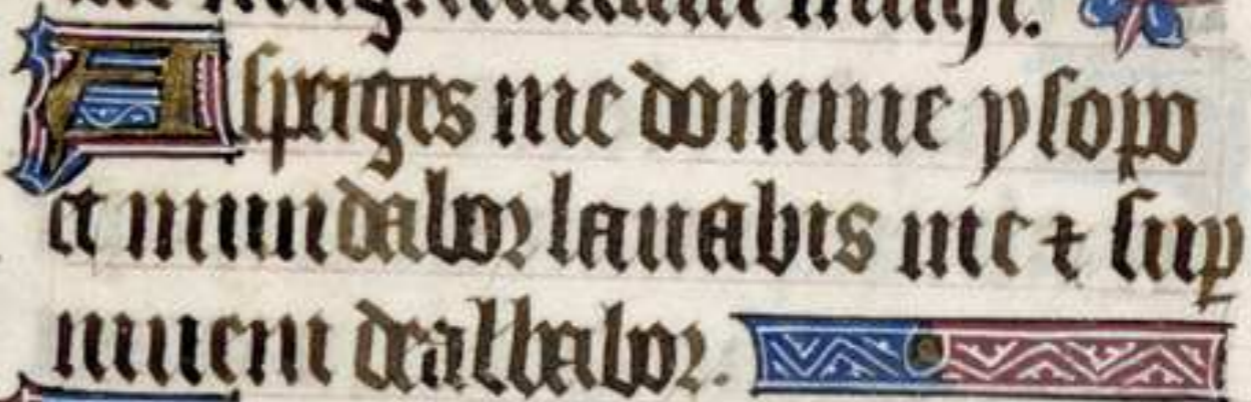 Asperges me domine ysopo
et mundabor lauabis me ⁊ sup
niuem dealbabor.